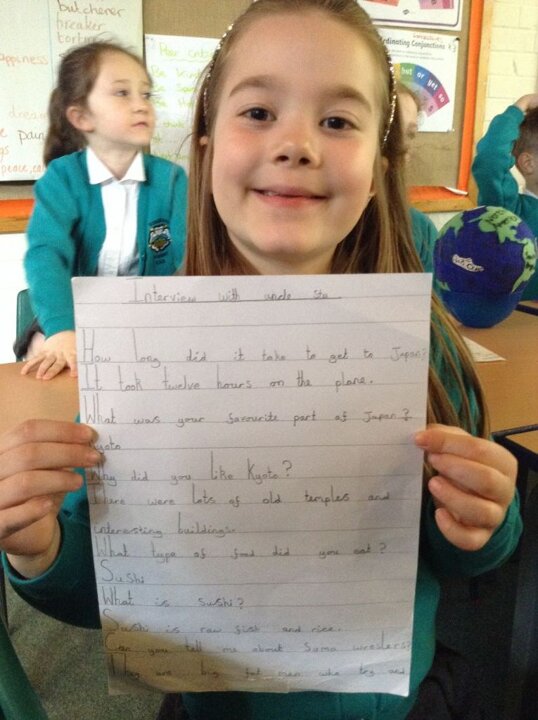 butchener
breaker
torture
happiness
dream
pain
peace,
Coordinating Conjunctions
but or yet so
Interview with uncle Ste
How long did it take to get to Japan?
It took twelve hours on the plane.
What was your favourite part of Japan?
Kyoto
Why did you like Kyoto?
There were lots of old temples and
interesting buildings.
What type of food did you eat?
Sushi
What is sushi?
Sushi is raw fish and rice.
Can you tell me about Sumo wreslers?
They are big fat men who try and